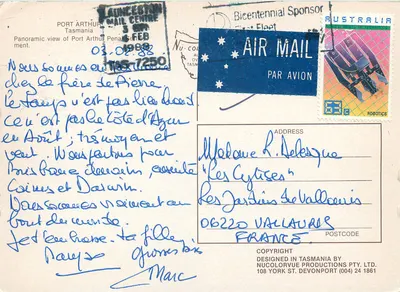 PORT ARTHUR
Tasmania
Panoramic view of Port Arthur Penal
03.02.88
Nous sommes au
chez le frère de Pierre
le temps n'est pas
ce n'est pas la Côte d'Azur
en Août ; très moyen et
vent. Nous partons pour
demain, ensuite
Cairns et Darwin.
Nous sommes vraiment au
bout du monde.
Je t'embrasse. Ta fille
Grosses bises
Marc
LAUNCESTON
MAIL CENTRE
5 FEB
1988
TAS 7250
Bicentennial Sponsor
First Fleet
AIR MAIL
PAR AVION
AUSTRALIA
63c
ROBOTICS
ADDRESS
Madame R.
"Les Cytises"
Les Jardins de Vallauris
06220 VALLAURIS
FRANCE
POSTCODE
DESIGNED IN TASMANIA BY
NUCOLORVUE PRODUCTIONS PTY. LTD.
108 YORK ST. DEVONPORT (004) 24 1861